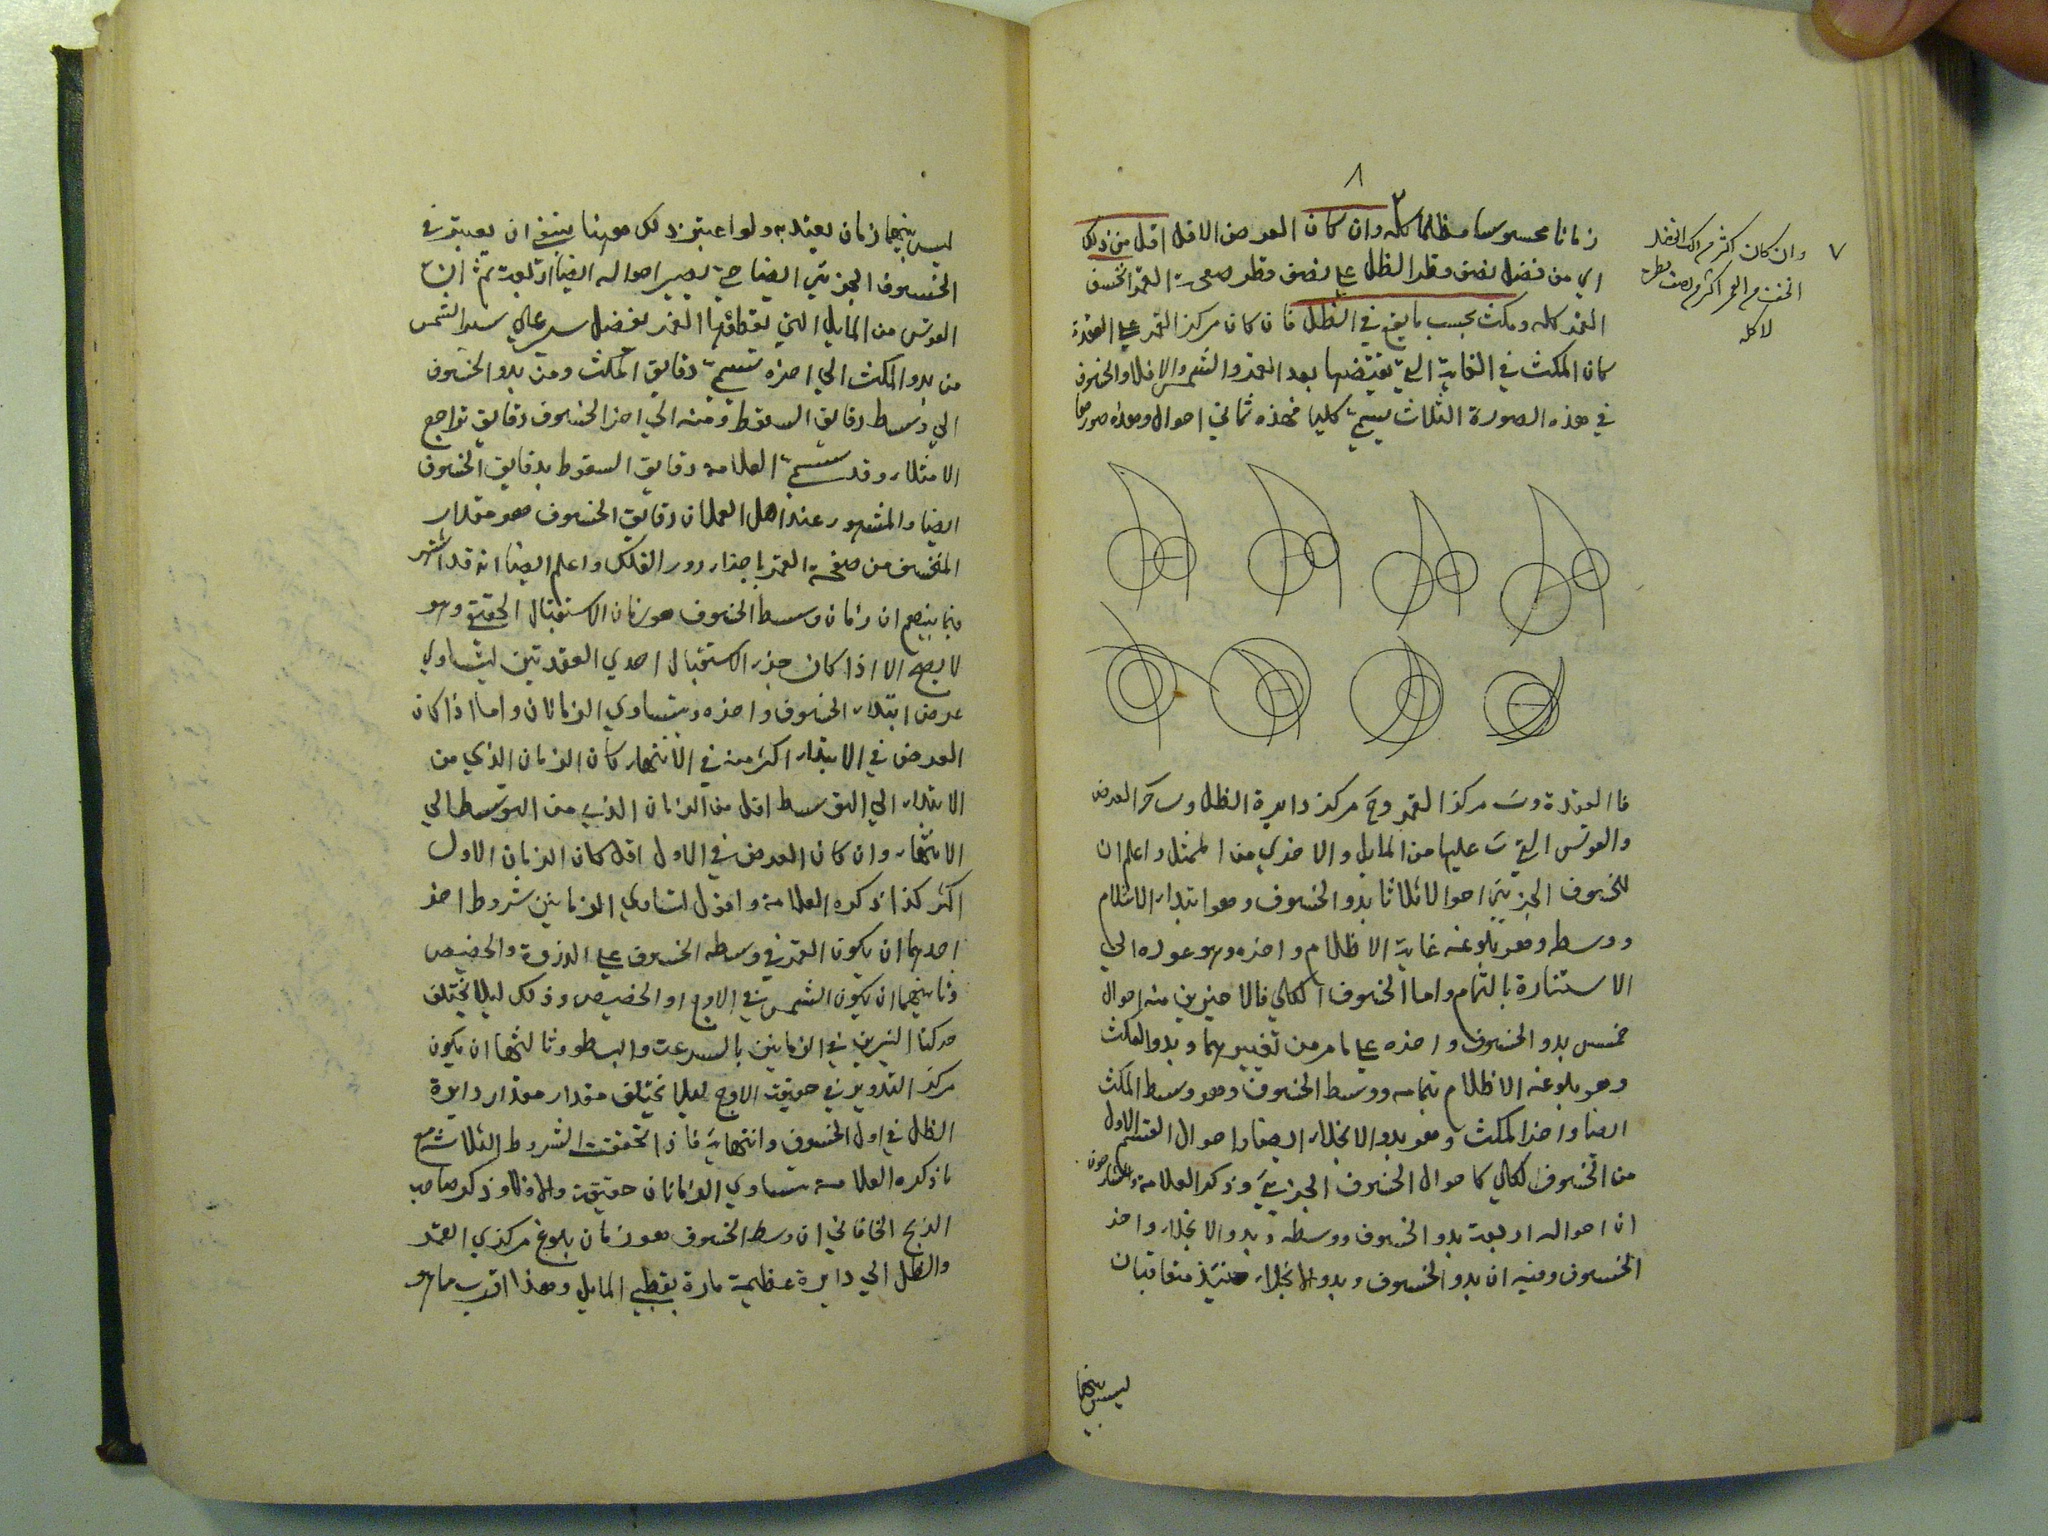 ٨
زمانا محسوسا مظلما كله وان كان العرض الاقل اقل من ذلك
اي من فضل نصف قطر الظل على نصف قطر صفحة القمر انخسف
القمر كله ومكث بحسب ما يقع في الظل فان كان مركز القمر على العقدة
كان المكث في الغاية التي يقتضيها بعد القمر والشمس والا فلا والخسوف
في هذه الصورة الثلاث يسمى كليا فهذه ثماني احوال وهذه صورها
٧ وان كان اكثر من ذلك
انخسف من القمر اكثر من نصف قطره
لا كله
فا العقدة وب مركز القمر وح مركز دايرة الظل و ب ح العرض
والقوس التي ب عليها من المايل والاخري من الممثل واعلم ان
للخسوف الجزيي احوالا ثلاثا بدو الخسوف وهو ابتداء الانثلام
ووسطه وهو بلوغه غاية الاظلام واخره وهو عوده الي
الاستنارة بالتمام واما الخسوف الكلي فالاخيرين منه احوال
خمس بدو الخسوف واخره على ما مر من تفسيرهما وبدو المكث
وهو بلوغه الاظلام بتمامه ووسط الخسوف وهو وسط المكث
ايضا واخر المكث وهو بدو الانجلاء ايضا واحوال القسم الاول
من الخسوف الكلي كاحوال الخسوف الجزيي وذكر العلامة
ان احواله اربعة بدو الخسوف ووسطه وبدو الانجلاء واخر
الخسوف وفيه ان بدو الخسوف وبدو الانجلاء حينئذ متعاقبان
ليس بينهما
ليس بينهما زمان يعتد به ولو اعتبر ذلك ههنا ينبغي ان يعتبر في
الخسوف الجزيي ايضا حتى يصير احواله ايضا اربعة ثم ان
القوس من المايل التي يقطعها القمر بفضل سير علي سير الشمس
من بدو المكث الي اخره تسمى دقايق المكث ومن بدو الخسوف
الي وسط دقايق السقوط ومنه الي اخر الخسوف دقايق تراجع
الامتلاء وقد يسمي العلامة دقايق السقوط بدقايق الخسوف
ايضا والمشهور عند اهل العمل ان دقايق الخسوف هو مقدار
المنخسف من صفحة القمر باجزاء دور الفلك واعلم ايضا انه قد اشتهر
فيما بينهم ان زمان وسط الخسوف هو زمان الاستقبال الحقيقي وهو
لا يصح الا اذا كان جزء الاستقبال احدي العقدتين ليتساوي
عرض ابتداء الخسوف واخره ويتساوي الزمانان واما اذا كان
العرض في الابتداء اكثر منه في الانتهاء كان الزمان الذي من
الابتداء الي التوسط اقل من الزمان الذي من التوسط الي
الانتهاء وان كان العرض في الاول اقل كان الزمان الاول
اكثر كذا ذكره العلامة واقول لتساوي الزمانين شروط اخر
احدها ان يكون القمر في وسط الخسوف على الذروة والحضيض
وثانيهما ان يكون الشمس في الاوج او الحضيض وذلك ليلا يختلف
حركتا النيرين في الزمانين بالسرعة والبطو وثالثها ان يكون
مركز التدوير في حقيقة الاوج ليلا يختلف مقدار مقدار دايرة
الظل في اول الخسوف وانتهايه فاذا تحققت الشروط الثلاث مع
ما ذكره العلامة يتساوي الزمانان حقيقة والا فلا وذكر صاحب
الزيج الخاقاني ان وسط الخسوف هو زمان بلوغ مركزي القمر
والظل الي دايرة عظيمة مارة بقطبي المايل وهذا اقرب مما هو